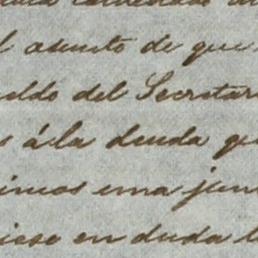 l asunto de que
ldo del Secretar
s á la deuda qu
imos una jun
iese en duda l